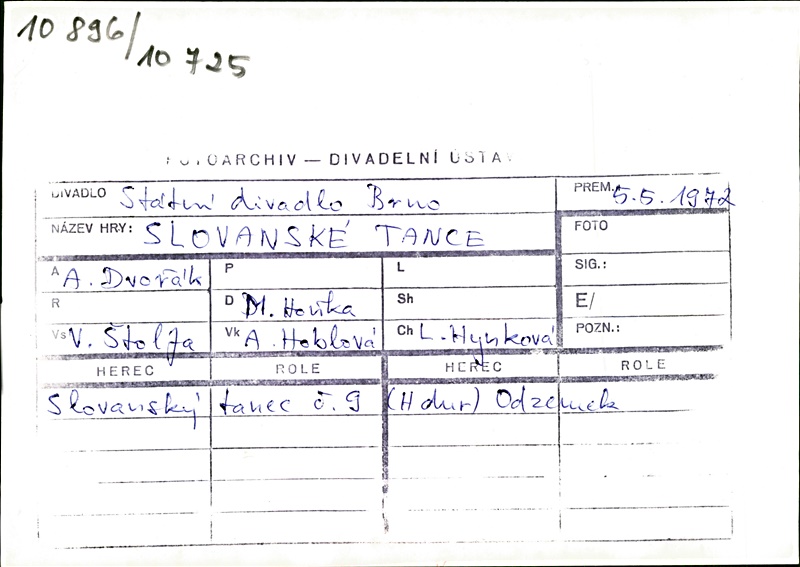 10 896/
10 725
FOTOARCHIV — DIVADELNÍ ÚSTAV
DIVADLO Státní divadlo Brno PREM. 5.5.1972
NÁZEV HRY: SLOVANSKÉ TANCE FOTO
A A. Dvořák P L SIG.:
R D M. Sh E/
Vs V. Štolfa Vk A. Hoblová Ch L. Hynková POZN.:
HEREC ROLE HEREC ROLE
Slovanský tanec č. 9 (H dur) Odzemek